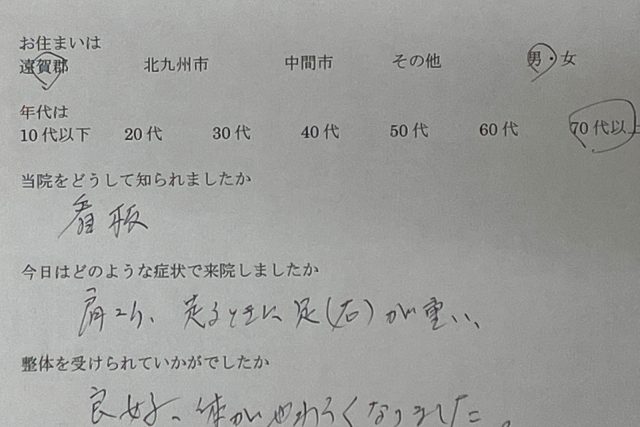 お住まいは
遠賀郡 北九州市 中間市 その他 男・女
年代は
10代以下 20代 30代 40代 50代 60代 70代以上
当院をどうして知られましたか
看板
今日はどのような症状で来院しましたか
肩こり、走るときに足(右)が重い、
整体を受けられていかがでしたか
良好、体がやわらくなりました。